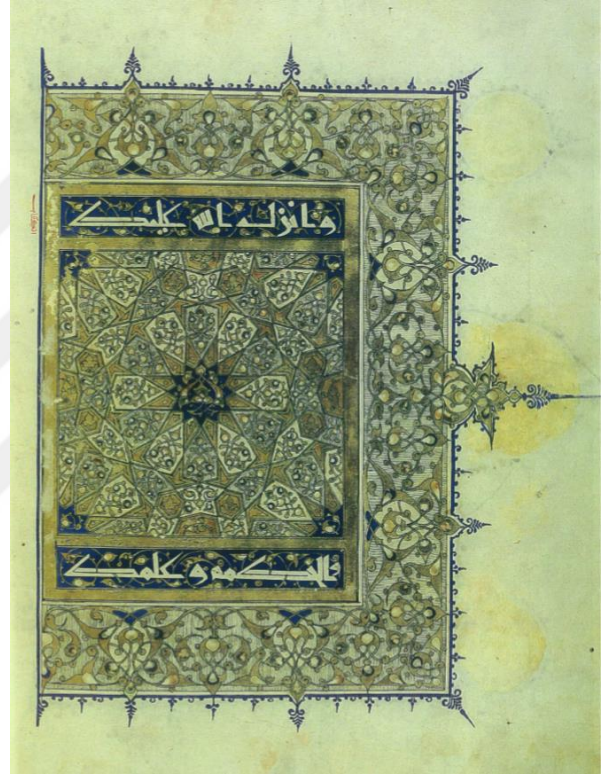 وانزل الله عليك
والحكمه وعلمك